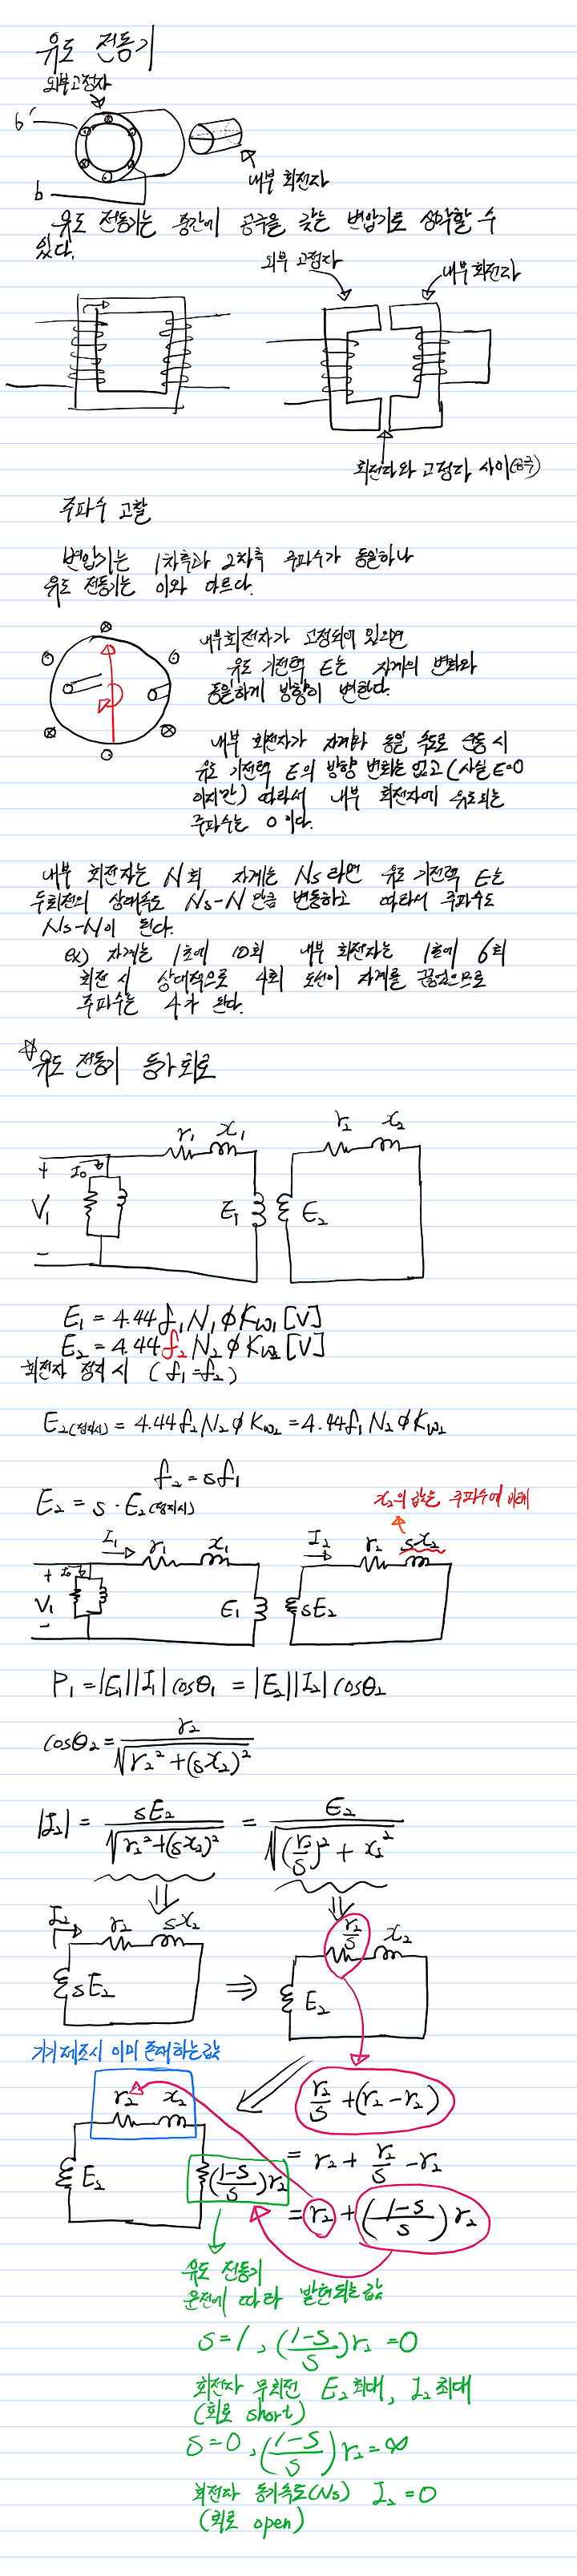 유도 전동기
외부고정자
b′
b
내부 회전자
유도 전동기는 중간에 공극을 갖는 변압기로 생각할 수
있다.
외부 고정자
내부회전자
회전자와 고정자 사이(공극)
주파수 고찰
변압기는 1차측과 2차측 주파수가 동일하나
유도 전동기는 이와 다르다.
내부회전자가 고정되어 있으면
유도 기전력 E는 자계의 변화와
동일하게 방향이 변한다.
내부 회전자가 자계와 동일 속도로 운동 시
유도 기전력 E의 방향 변화는 없고 (사실 E=0
이지만) 따라서 내부 회전자에 유도되는
주파수는 0 이다.
내부 회전자는 N회 자계는 Ns 라면 유도 기전력 E는
두회전의 상대속도 Ns-N 만큼 변동하고 따라서 주파수도
Ns-N이 된다.
ex) 자계는 1초에 10회 내부 회전자는 1초에 6회
회전 시 상대적으로 4회 도선이 자계를 끊었으므로
주파수는 4가 된다.
☆유도 전동기 등가회로
r₁ x₁ r₂ x₂
+ I₀
V₁ E₁ E₂
-
E₁ = 4.44 f₁ N₁ ϕ Kw₁ [V]
E₂ = 4.44 f₂ N₂ ϕ Kw₂ [V]
회전자 정지 시 (f₁=f₂)
E₂(정지시) = 4.44 f₂ N₂ ϕ Kw₂ = 4.44 f₁ N₂ ϕ Kw₂
f₂ = sf₁
E₂ = s · E₂(정지시)
x₂의 값은 주파수에 비례
I₁ r₁ x₁ I₂ r₂ sx₂
+ I₀
V₁ E₁ sE₂
-
P₁ = |E₁||I₁| cosθ₁ = |E₂||I₂| cosθ₂
cosθ₂ = r₂ / √(r₂² + (sx₂)²)
|I₂| = sE₂ / √(r₂² + (sx₂)²) = E₂ / √((r₂/s)² + x₂²)
I₂ r₂ sx₂
sE₂
⇒
r₂/s x₂
E₂
기기제조시 이미 존재하는 값
r₂ x₂
E₂ ((1-s)/s) r₂
r₂/s + (r₂ - r₂)
= r₂ + r₂/s - r₂
= r₂ + ((1-s)/s) r₂
유도 전동기
운전에 따라 발현되는 값
s=1, ((1-s)/s) r₂ = 0
회전자 무회전 E₂ 최대, I₂ 최대
(회로 short)
s=0, ((1-s)/s) r₂ = ∞
회전자 동기속도(Ns) I₂ = 0
(회로 open)